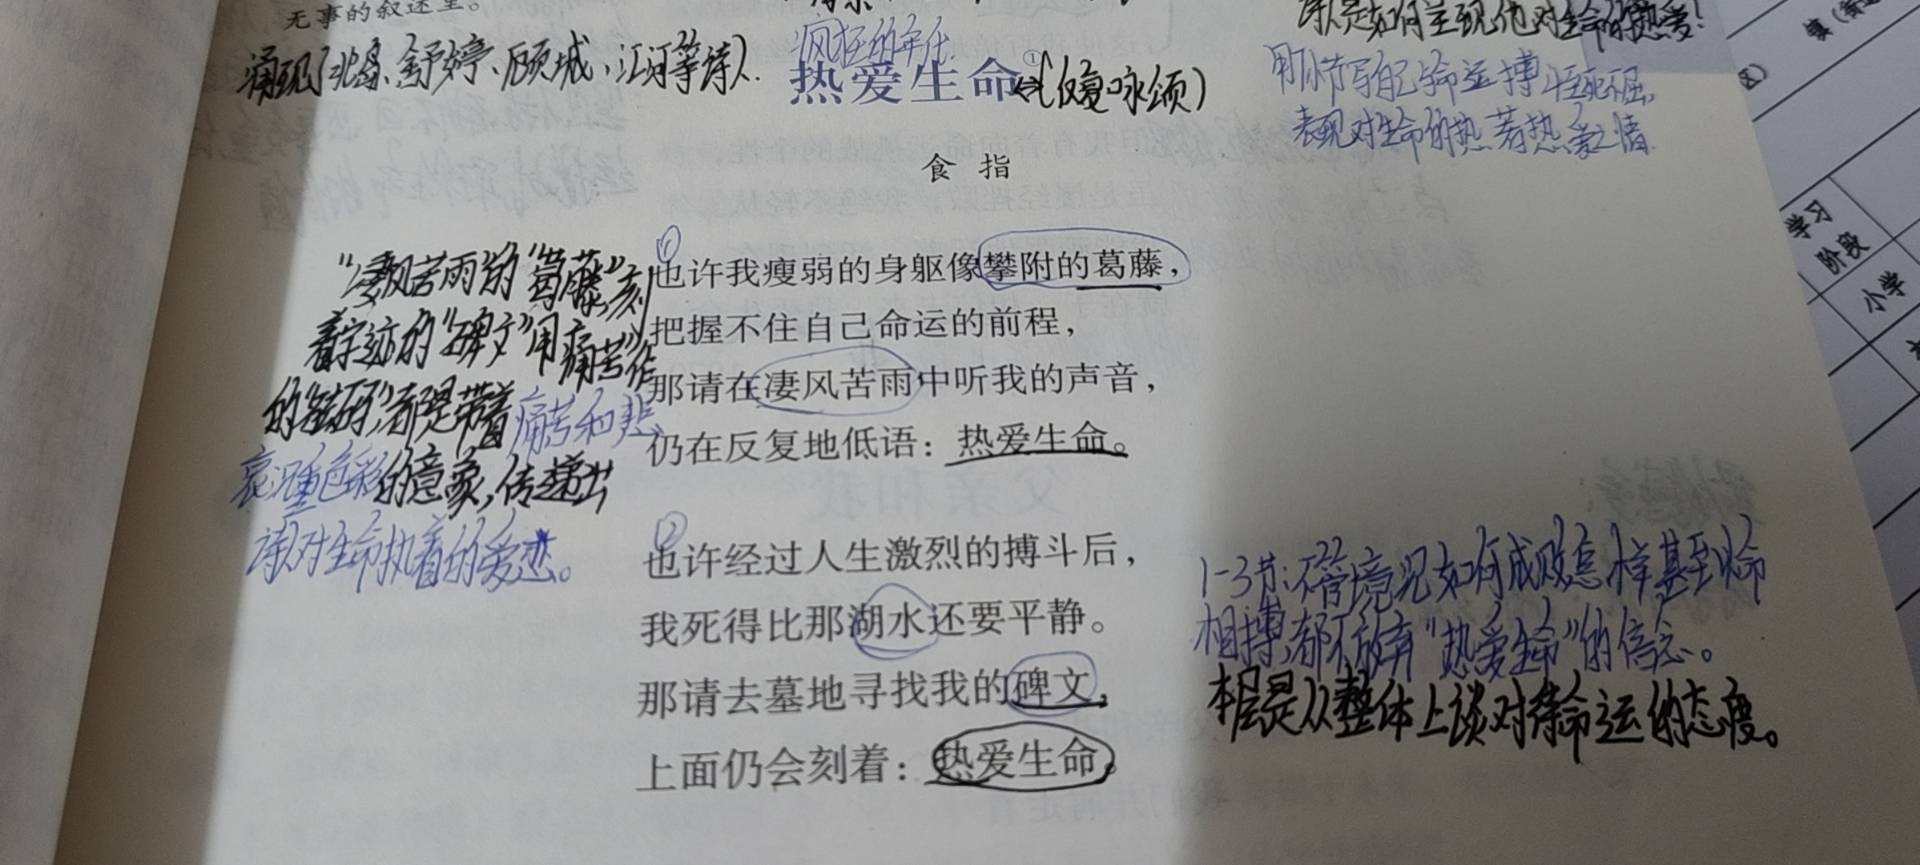 无事的叙述里。
涌现了北岛、舒婷、顾城、江河等诗人.
疯狂的年代
热爱生命①
(反复咏颂)
诗人是如何呈现他对生命的热爱?
表现对生命的热 若热爱之情.
食 指
①
也许我瘦弱的身躯像攀附的葛藤，
把握不住自己命运的前程，
那请在凄风苦雨中听我的声音，
仍在反复地低语：热爱生命。
"凄风苦雨"的"葛藤"刻
着字迹的"碑文"用痛苦作
的"砝码"都是带着痛苦和悲
哀沉重色彩的意象,传递出
诗人对生命执着的爱恋。
②
也许经过人生激烈的搏斗后，
我死得比那湖水还要平静。
那请去墓地寻找我的碑文，
上面仍会刻着：热爱生命。
1-3节:不管境况如何成败怎样甚至以命
相搏,都不放弃"热爱生命"的信念。
本层是从整体上谈对待命运的态度。
学习
阶段
小学